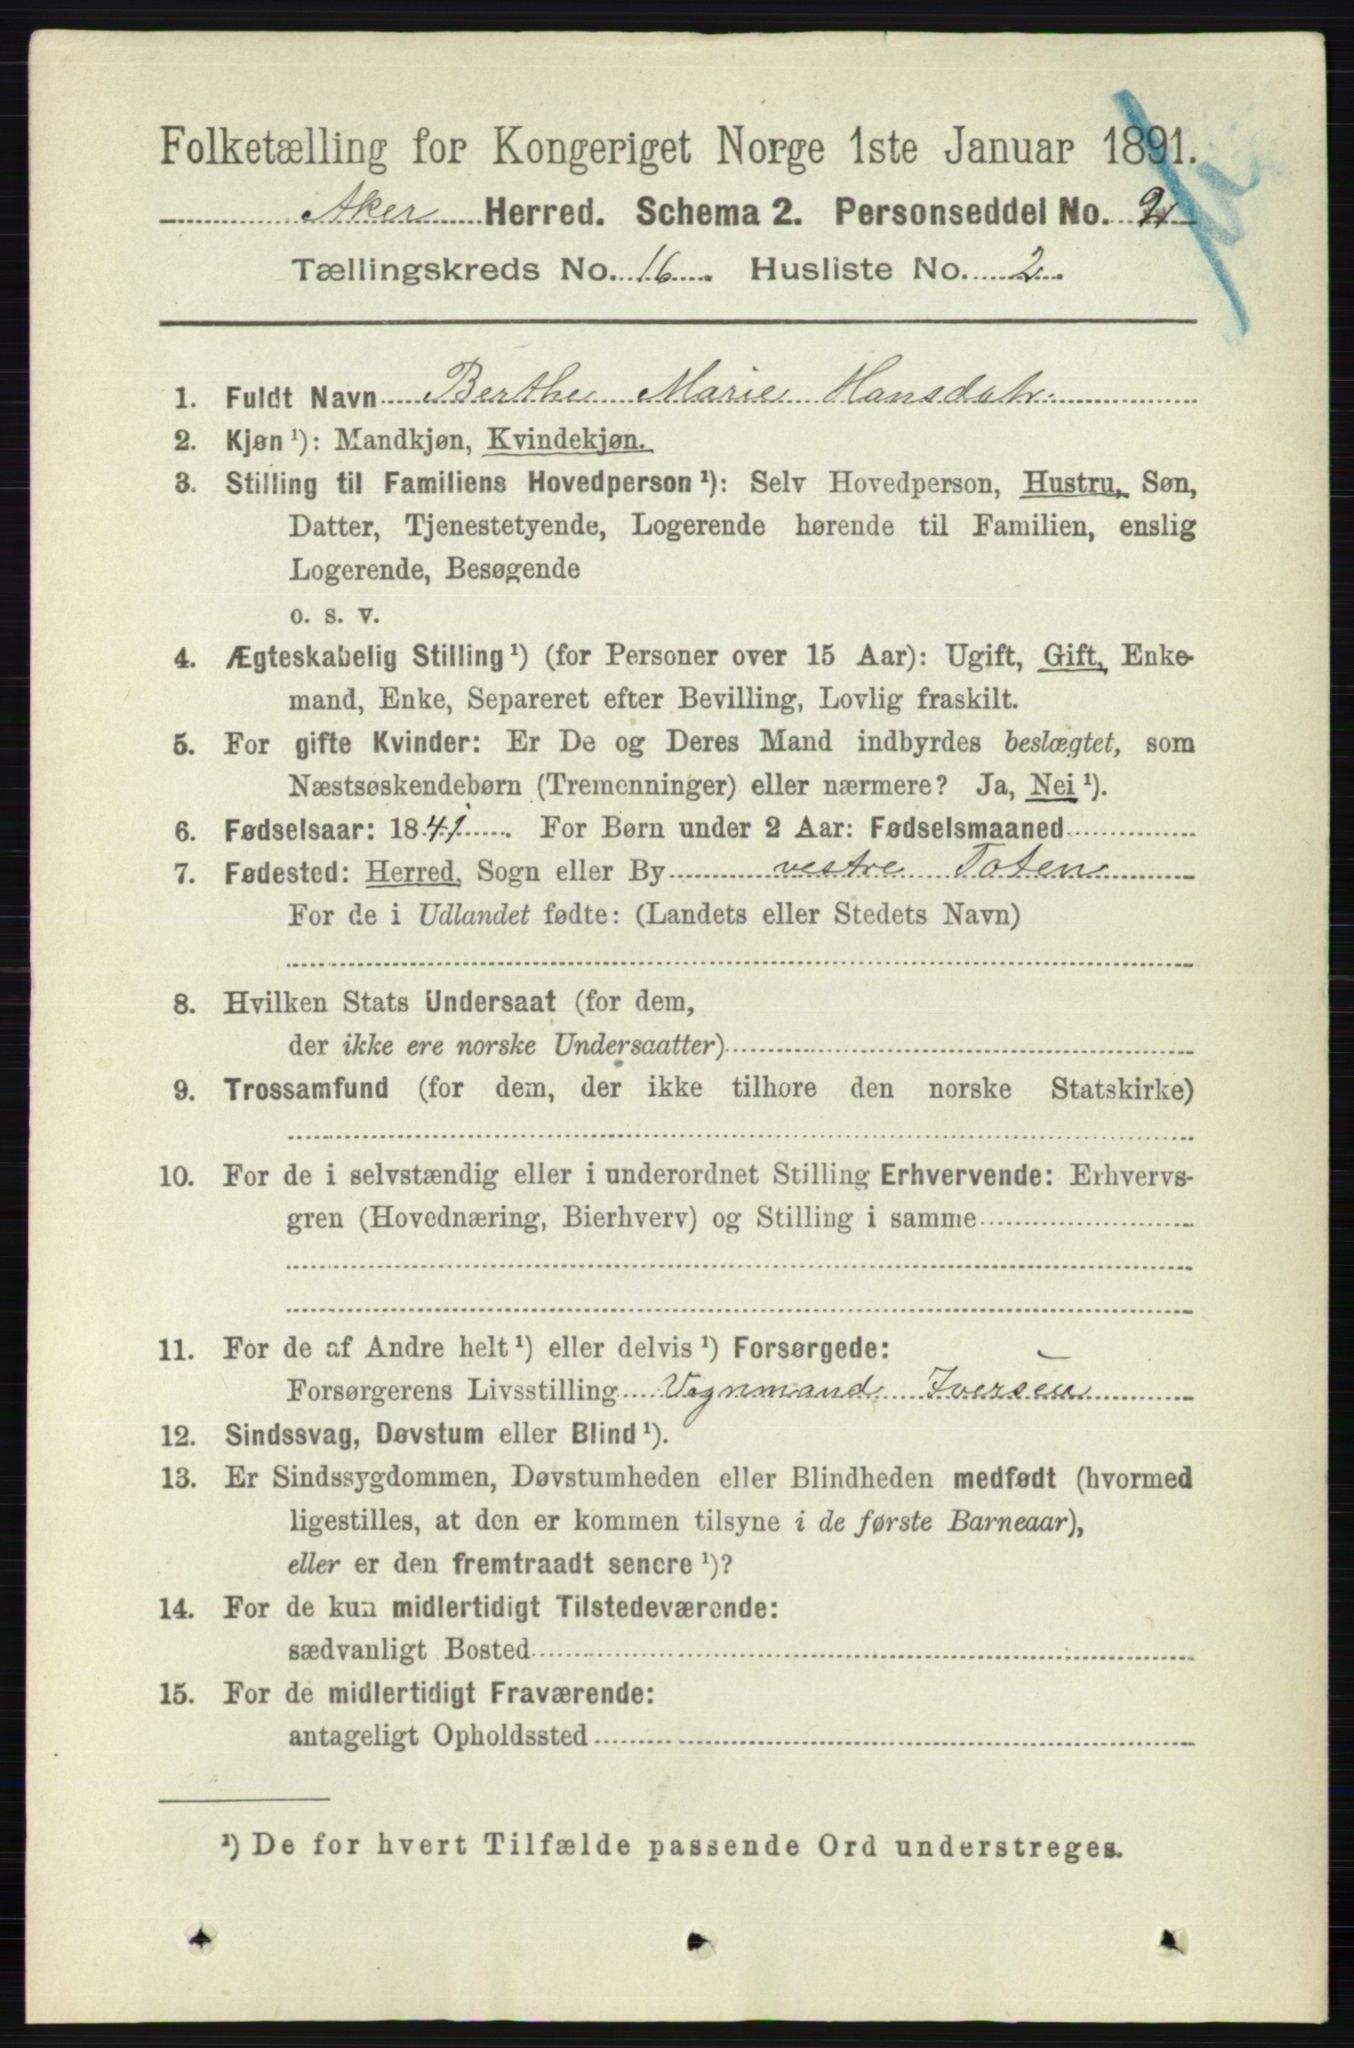 Folketælling for Kongeriget Norge 1ste Januar 1891.
Aker Herred. Schema 2. Personseddel No.
Tællingskreds No. 16. Husliste No. 2.
1. Fuldt Navn Berthe Marie Hansdatr.
2. Kjøn ¹): Mandkjøn, Kvindekjøn.
3. Stilling til Familiens Hovedperson ¹): Selv Hovedperson, Hustru, Søn,
Datter, Tjenestetyende, Logerende hørende til Familien, enslig
Logerende, Besøgende
o. s. v.
4. Ægteskabelig Stilling ¹) (for Personer over 15 Aar): Ugift, Gift, Enke-
mand, Enke, Separeret efter Bevilling, Lovlig fraskilt.
5. For gifte Kvinder: Er De og Deres Mand indbyrdes beslægtet, som
Næstsøskendebørn (Tremenninger) eller nærmere? Ja, Nei ¹).
6. Fødselsaar: 1841. For Børn under 2 Aar: Fødselsmaaned
7. Fødested: Herred, Sogn eller By vestre Toten
For de i Udlandet fødte: (Landets eller Stedets Navn)
8. Hvilken Stats Undersaat (for dem,
der ikke ere norske Undersaatter)
9. Trossamfund (for dem, der ikke tilhore den norske Statskirke)
10. For de i selvstændig eller i underordnet Stilling Erhvervende: Erhvervs-
gren (Hovednæring, Bierhverv) og Stilling i samme
11. For de af Andre helt ¹) eller delvis ¹) Forsørgede:
Forsørgerens Livsstilling Vognmand Iversen
12. Sindssvag, Døvstum eller Blind ¹).
13. Er Sindssygdommen, Døvstumheden eller Blindheden medfødt (hvormed
ligestilles, at den er kommen tilsyne i de første Barneaar),
eller er den fremtraadt senere ¹)?
14. For de kun midlertidigt Tilstedeværende:
sædvanligt Bosted
15. For de midlertidigt Fraværende:
antageligt Opholdssted
¹) De for hvert Tilfælde passende Ord understreges.